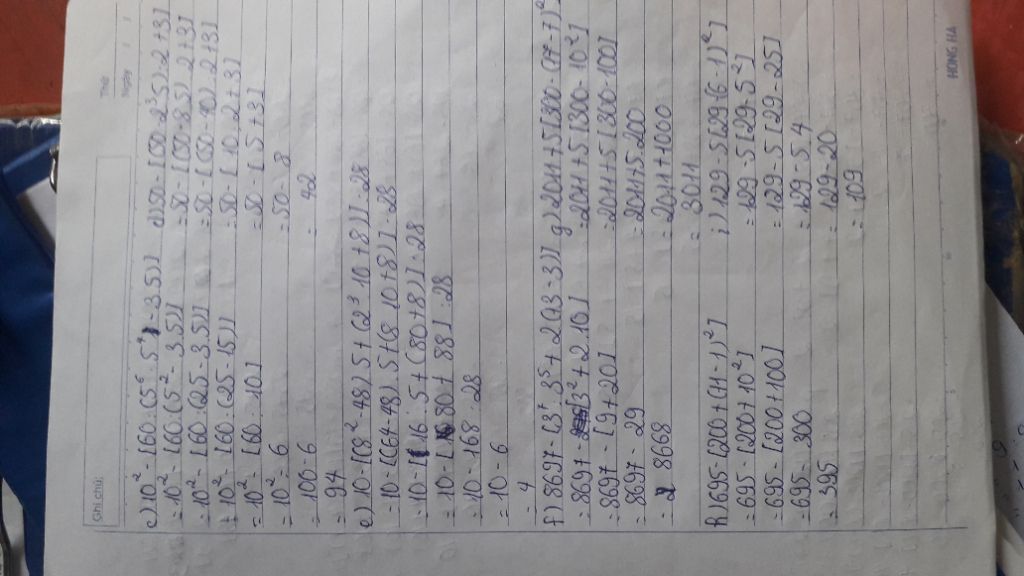 Thứ
Ngày
Ghi chú
c) 10² - [60 : (5⁶ : 5⁴ - 3.5)]
= 10² - [60 : (5² - 3.5)]
= 10² - [60 : (25 - 3.5)]
= 10² - [60 : (25 - 15)]
= 10² - [60 : 10]
= 10² - 6
= 100 - 6
= 94
d) 50 - [(50 - 2³.5) : 2 + 3]
= 50 - [(50 - 8.5) : 2 + 3]
= 50 - [(50 - 40) : 2 + 3]
= 50 - [10 : 2 + 3]
= 50 - [5 + 3]
= 50 - 8
= 42
e) 10 - [(8² - 48).5 + (2³.10 + 8)] : 28
= 10 - [(64 - 48).5 + (8.10 + 8)] : 28
= 10 - [16.5 + (80 + 8)] : 28
= 10 - [80 + 88] : 28
= 10 - 168 : 28
= 10 - 6
= 4
f) 8697 - [3⁷ : 3⁵ + 2(13 - 3)]
= 8697 - [3² + 2.10]
= 8697 - [9 + 20]
= 8697 - 29
= 8668
g) 2011 + 5[300 - (17 - 7)²]
= 2011 + 5[300 - 10²]
= 2011 + 5[300 - 100]
= 2011 + 5.200
= 2011 + 1000
= 3011
h) 695 - [200 + (11 - 1)²]
= 695 - [200 + 10²]
= 695 - [200 + 100]
= 695 - 300
= 395
i) 129 - 5[29 - (6 - 1)²]
= 129 - 5[29 - 5²]
= 129 - 5[29 - 25]
= 129 - 5.4
= 129 - 20
= 109
HONG HA